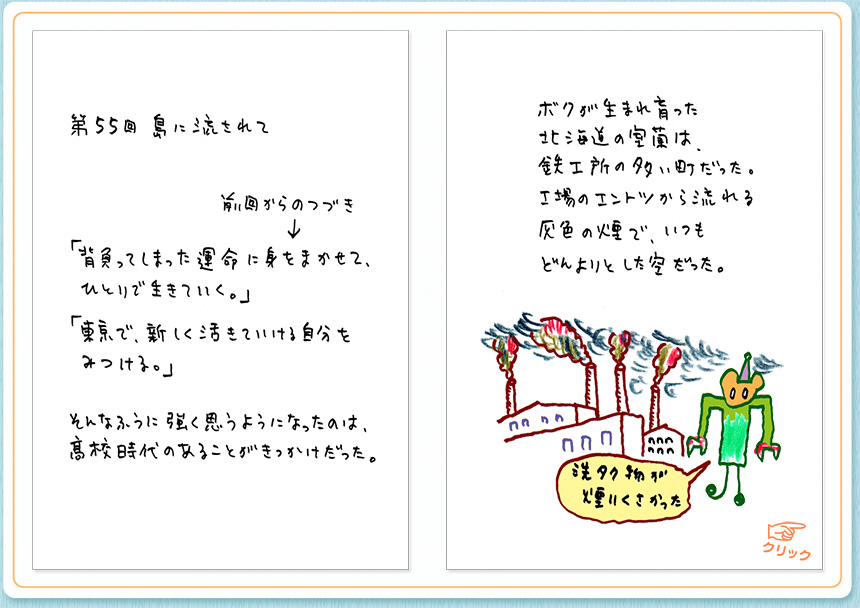 第55回 島に流されて
前回からのつづき
「背負ってしまった運命に身をまかせて、
ひとりで生きていく。」
「東京で、新しく活きていける自分を
みつける。」
そんなふうに強く思うようになったのは、
高校時代のあることがきっかけだった。
ボクが生まれ育った
北海道の室蘭は、
鉄工所の多い町だった。
工場のエントツから流れる
灰色の煙で、いつも
どんよりとした空だった。
洗タク物が
煙りくさかった
クリック